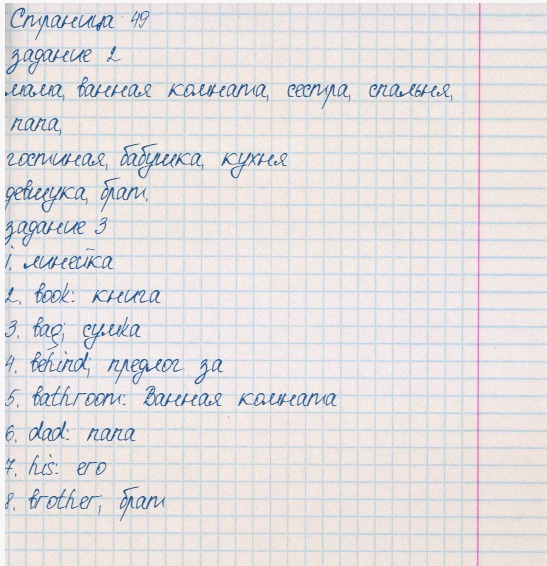 Страница 49
задание 2
мама, ванная комната, сестра, спальня,
папа,
гостиная, бабушка, кухня
девщука, брат.
задание 3
1. линейка
2. book: книга
3. bag; сумка
4. behind; предлог за
5. bathroom: Ванная комната
6. dad: папа
7. his: его
8. brother; брат